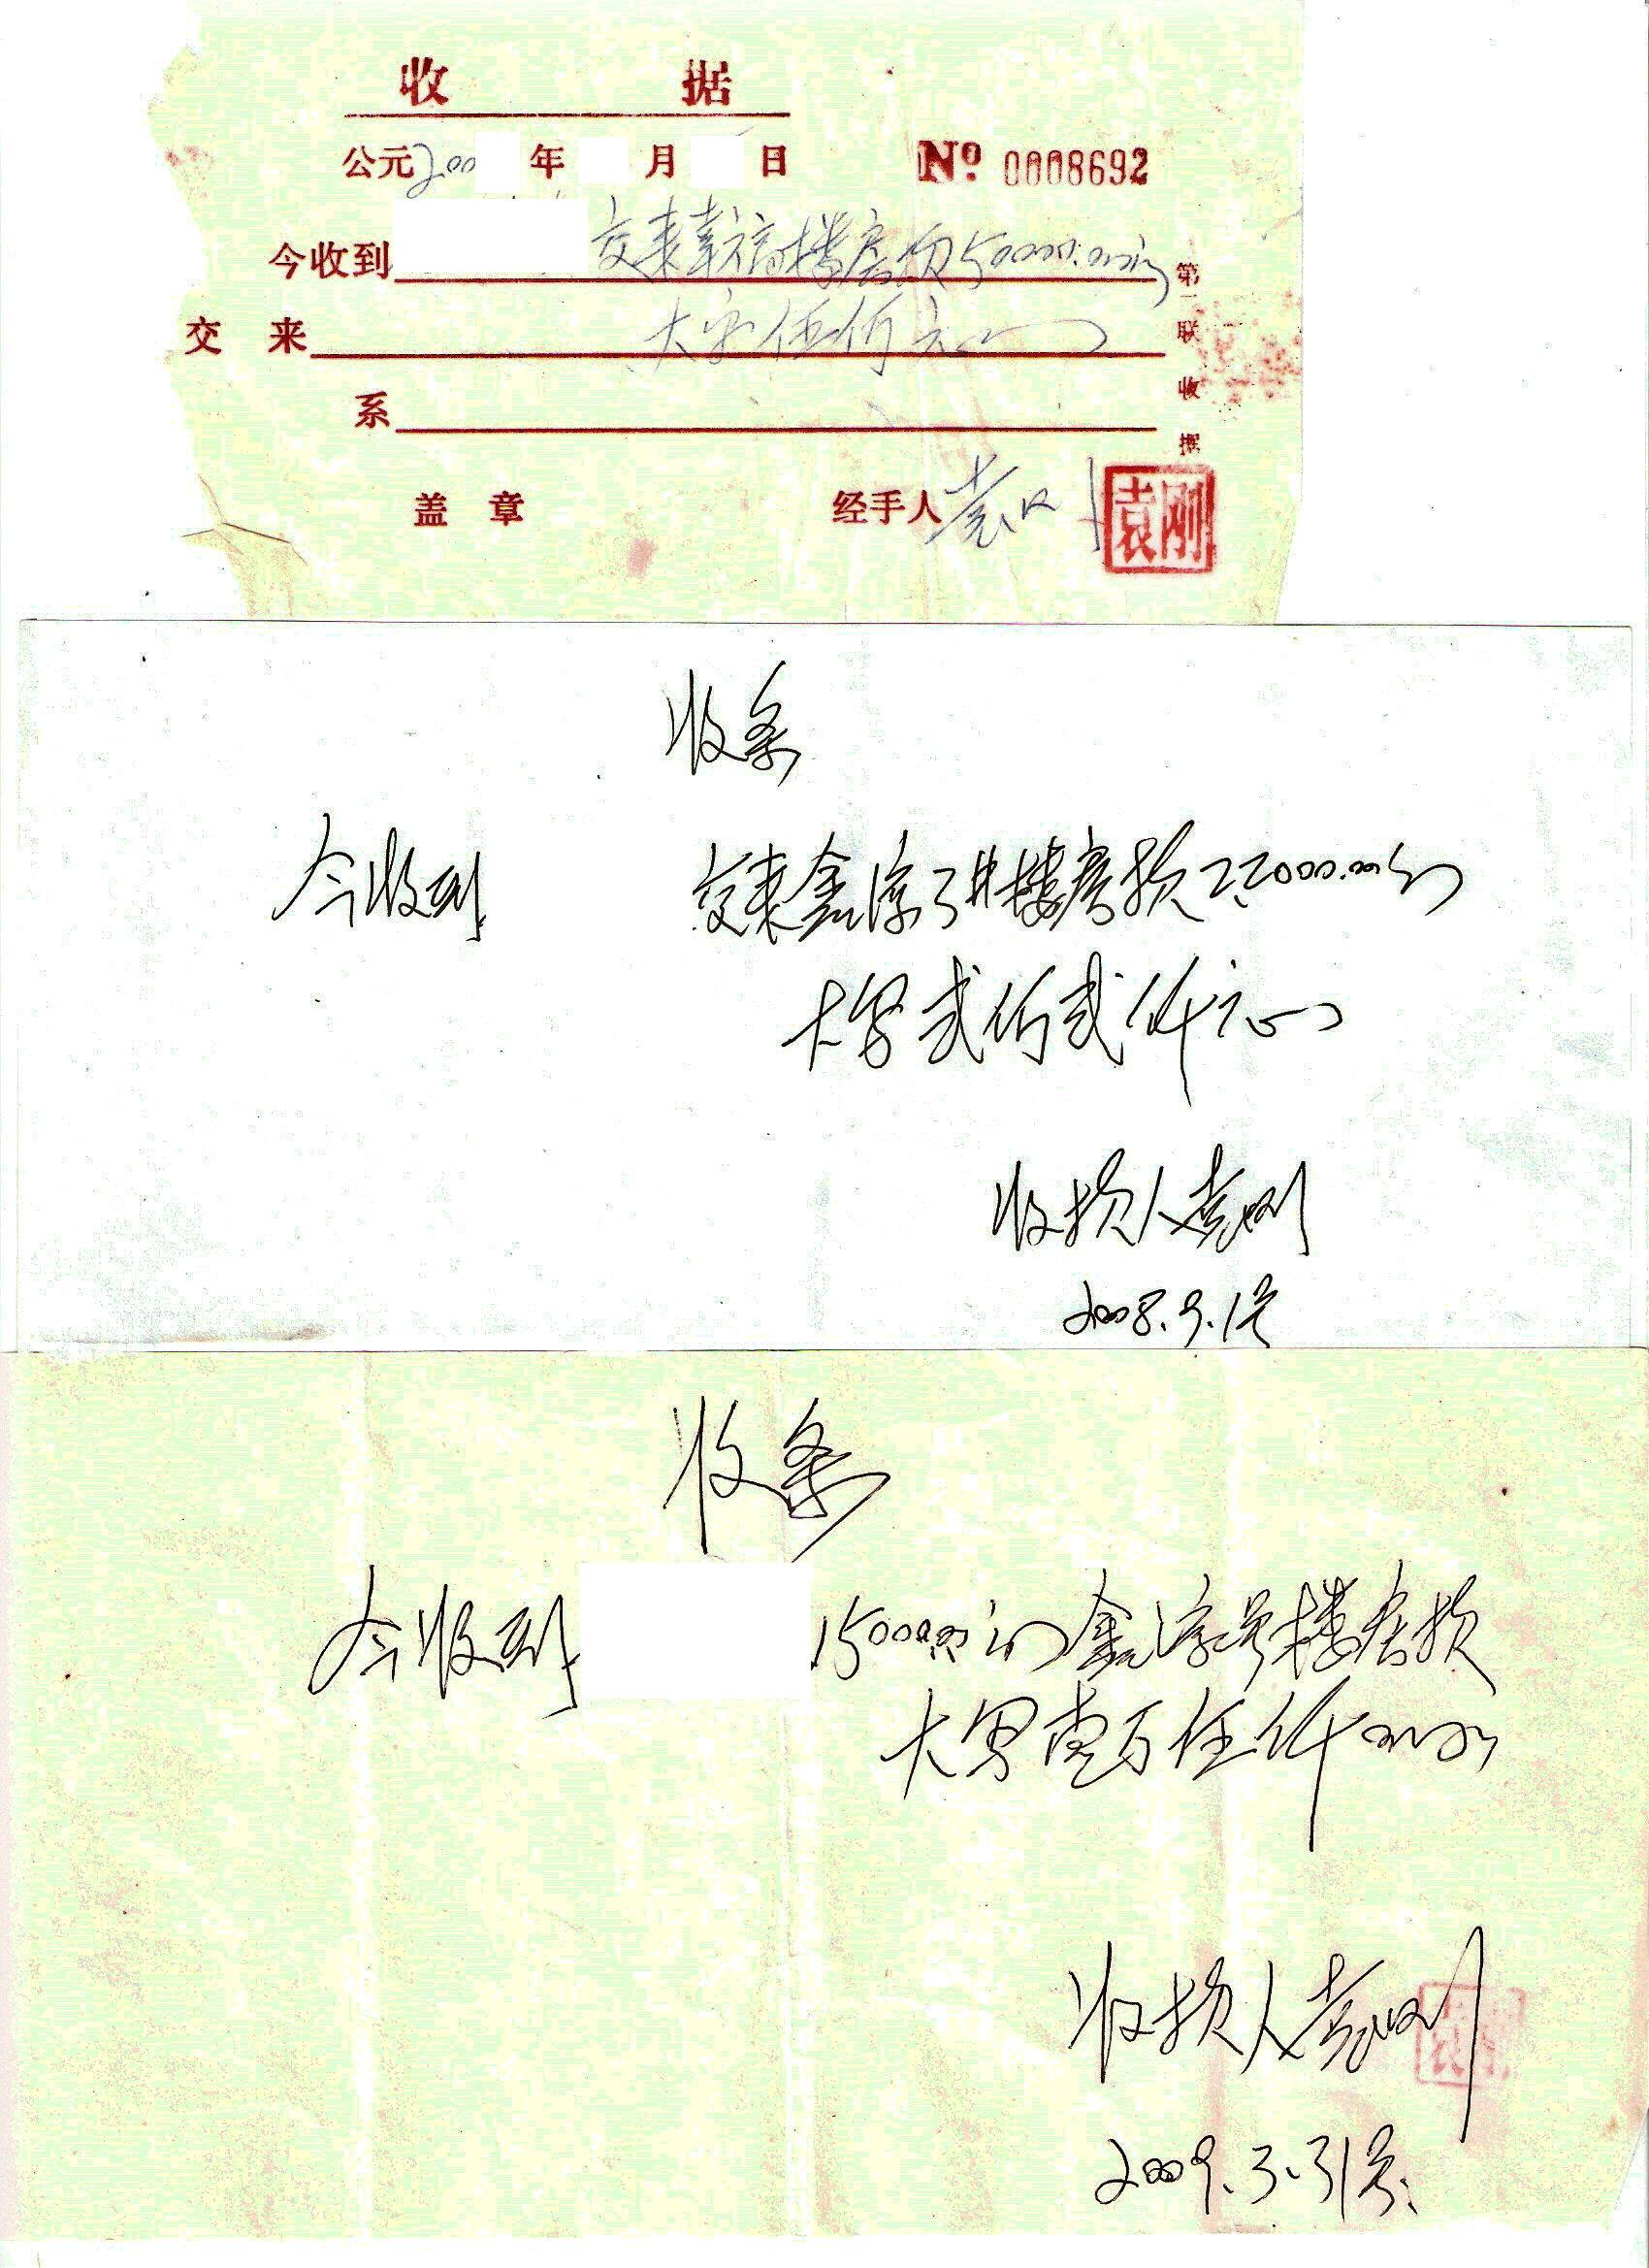 收 据
公元200 年 月 日 № 0008692
今收到 交来幸福楼房款50000.00元
交 来 大写伍仟元
系
第一联 收据
盖 章 经手人 袁刚
袁刚
收条
今收到 交来鑫源3#楼房款22000.00元
大写贰仟贰仟元
收款人袁刚
2008.9.1号
收条
今收到 15000.00元 鑫源 号楼房款
大写壹万伍仟
收款人袁刚
2009.3.31号